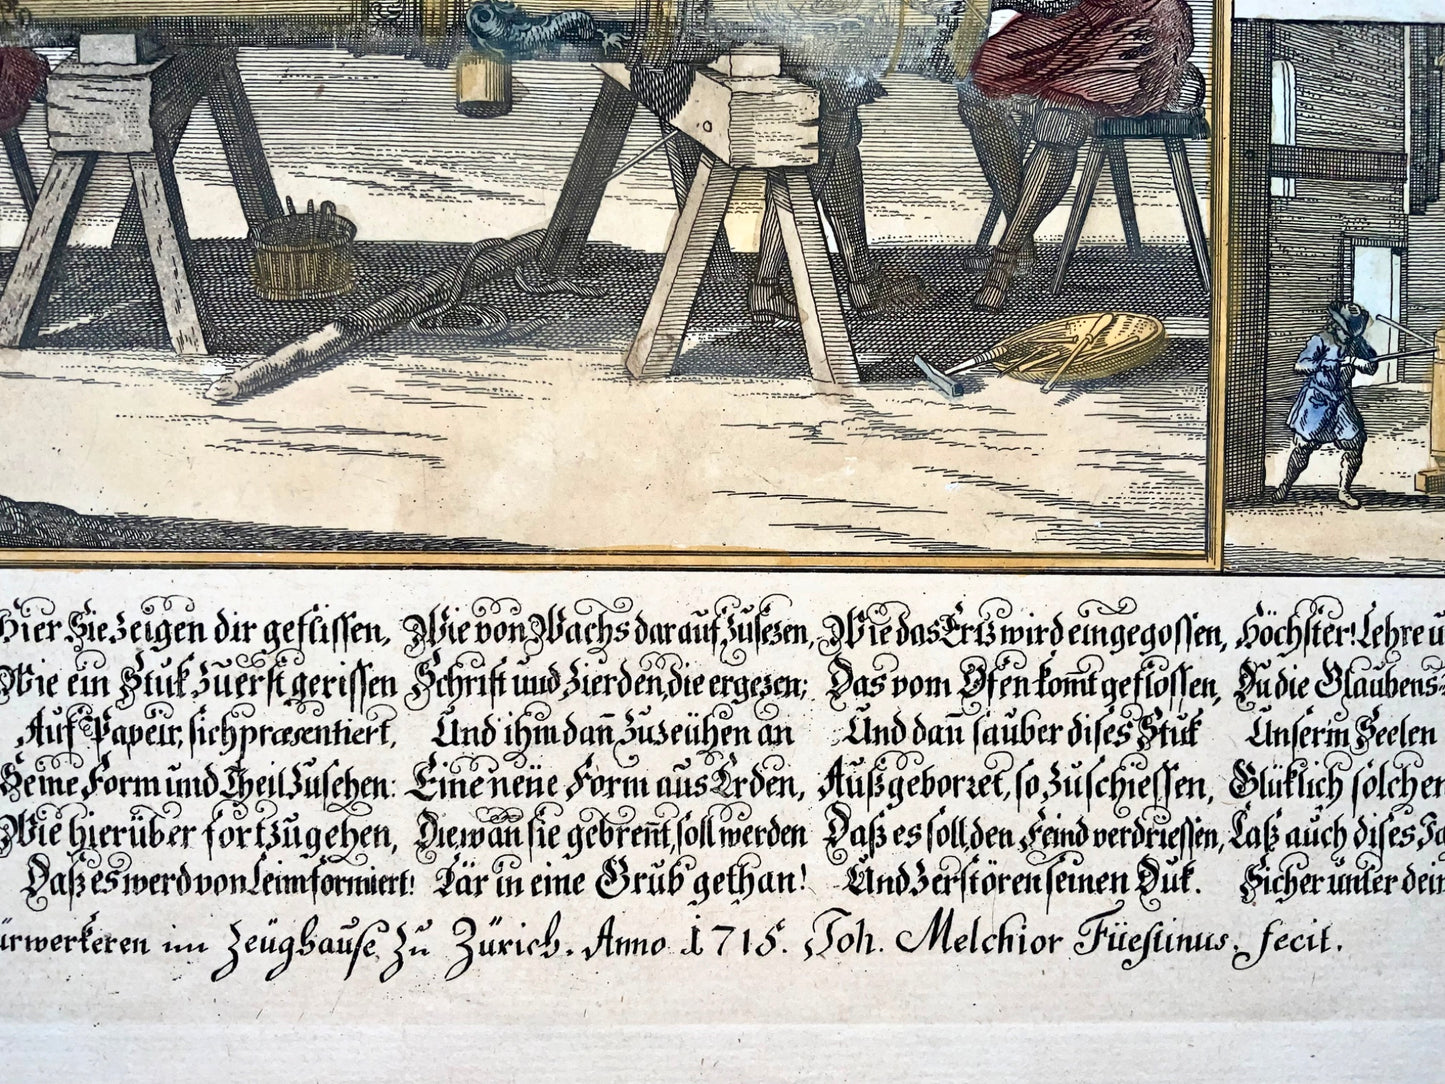 Hier Sie Zeigen dir geflissen,
Wie ein Stuk Zuerst gerissen
Auf Papeir, sich præsentiert,
Seine Form und Theil Zusehen:
Wie hierüber fortzugehen,
Daß es werd von Leim formiert!
Wie von Wachs darauf Zusezen,
Schrifft und Zierden, die ergezen;
Und ihm dañ Zuzeühen an
Eine neüe Form aus Erden,
Die, wañ sie gebreñt, soll werden
Tär in eine Grub gethan!
Wie das Ertz wird eingegossen,
Das vom Ofen kom̃t geflossen,
Und dañ sauber dises Stuk
Außgeborzet, so Zuschiessen,
Daß es soll, den Feind verdriessen,
Und Zerstören seinen Duk.
Höchster! Lehre
Du die Glaubens
Unserm Seelen
Glüklich solchen
Laß auch dises
Sicher unter
im Zeüghause Zu Zürich. Anno 1715. Joh. Melchior Füeslinus, fecit.